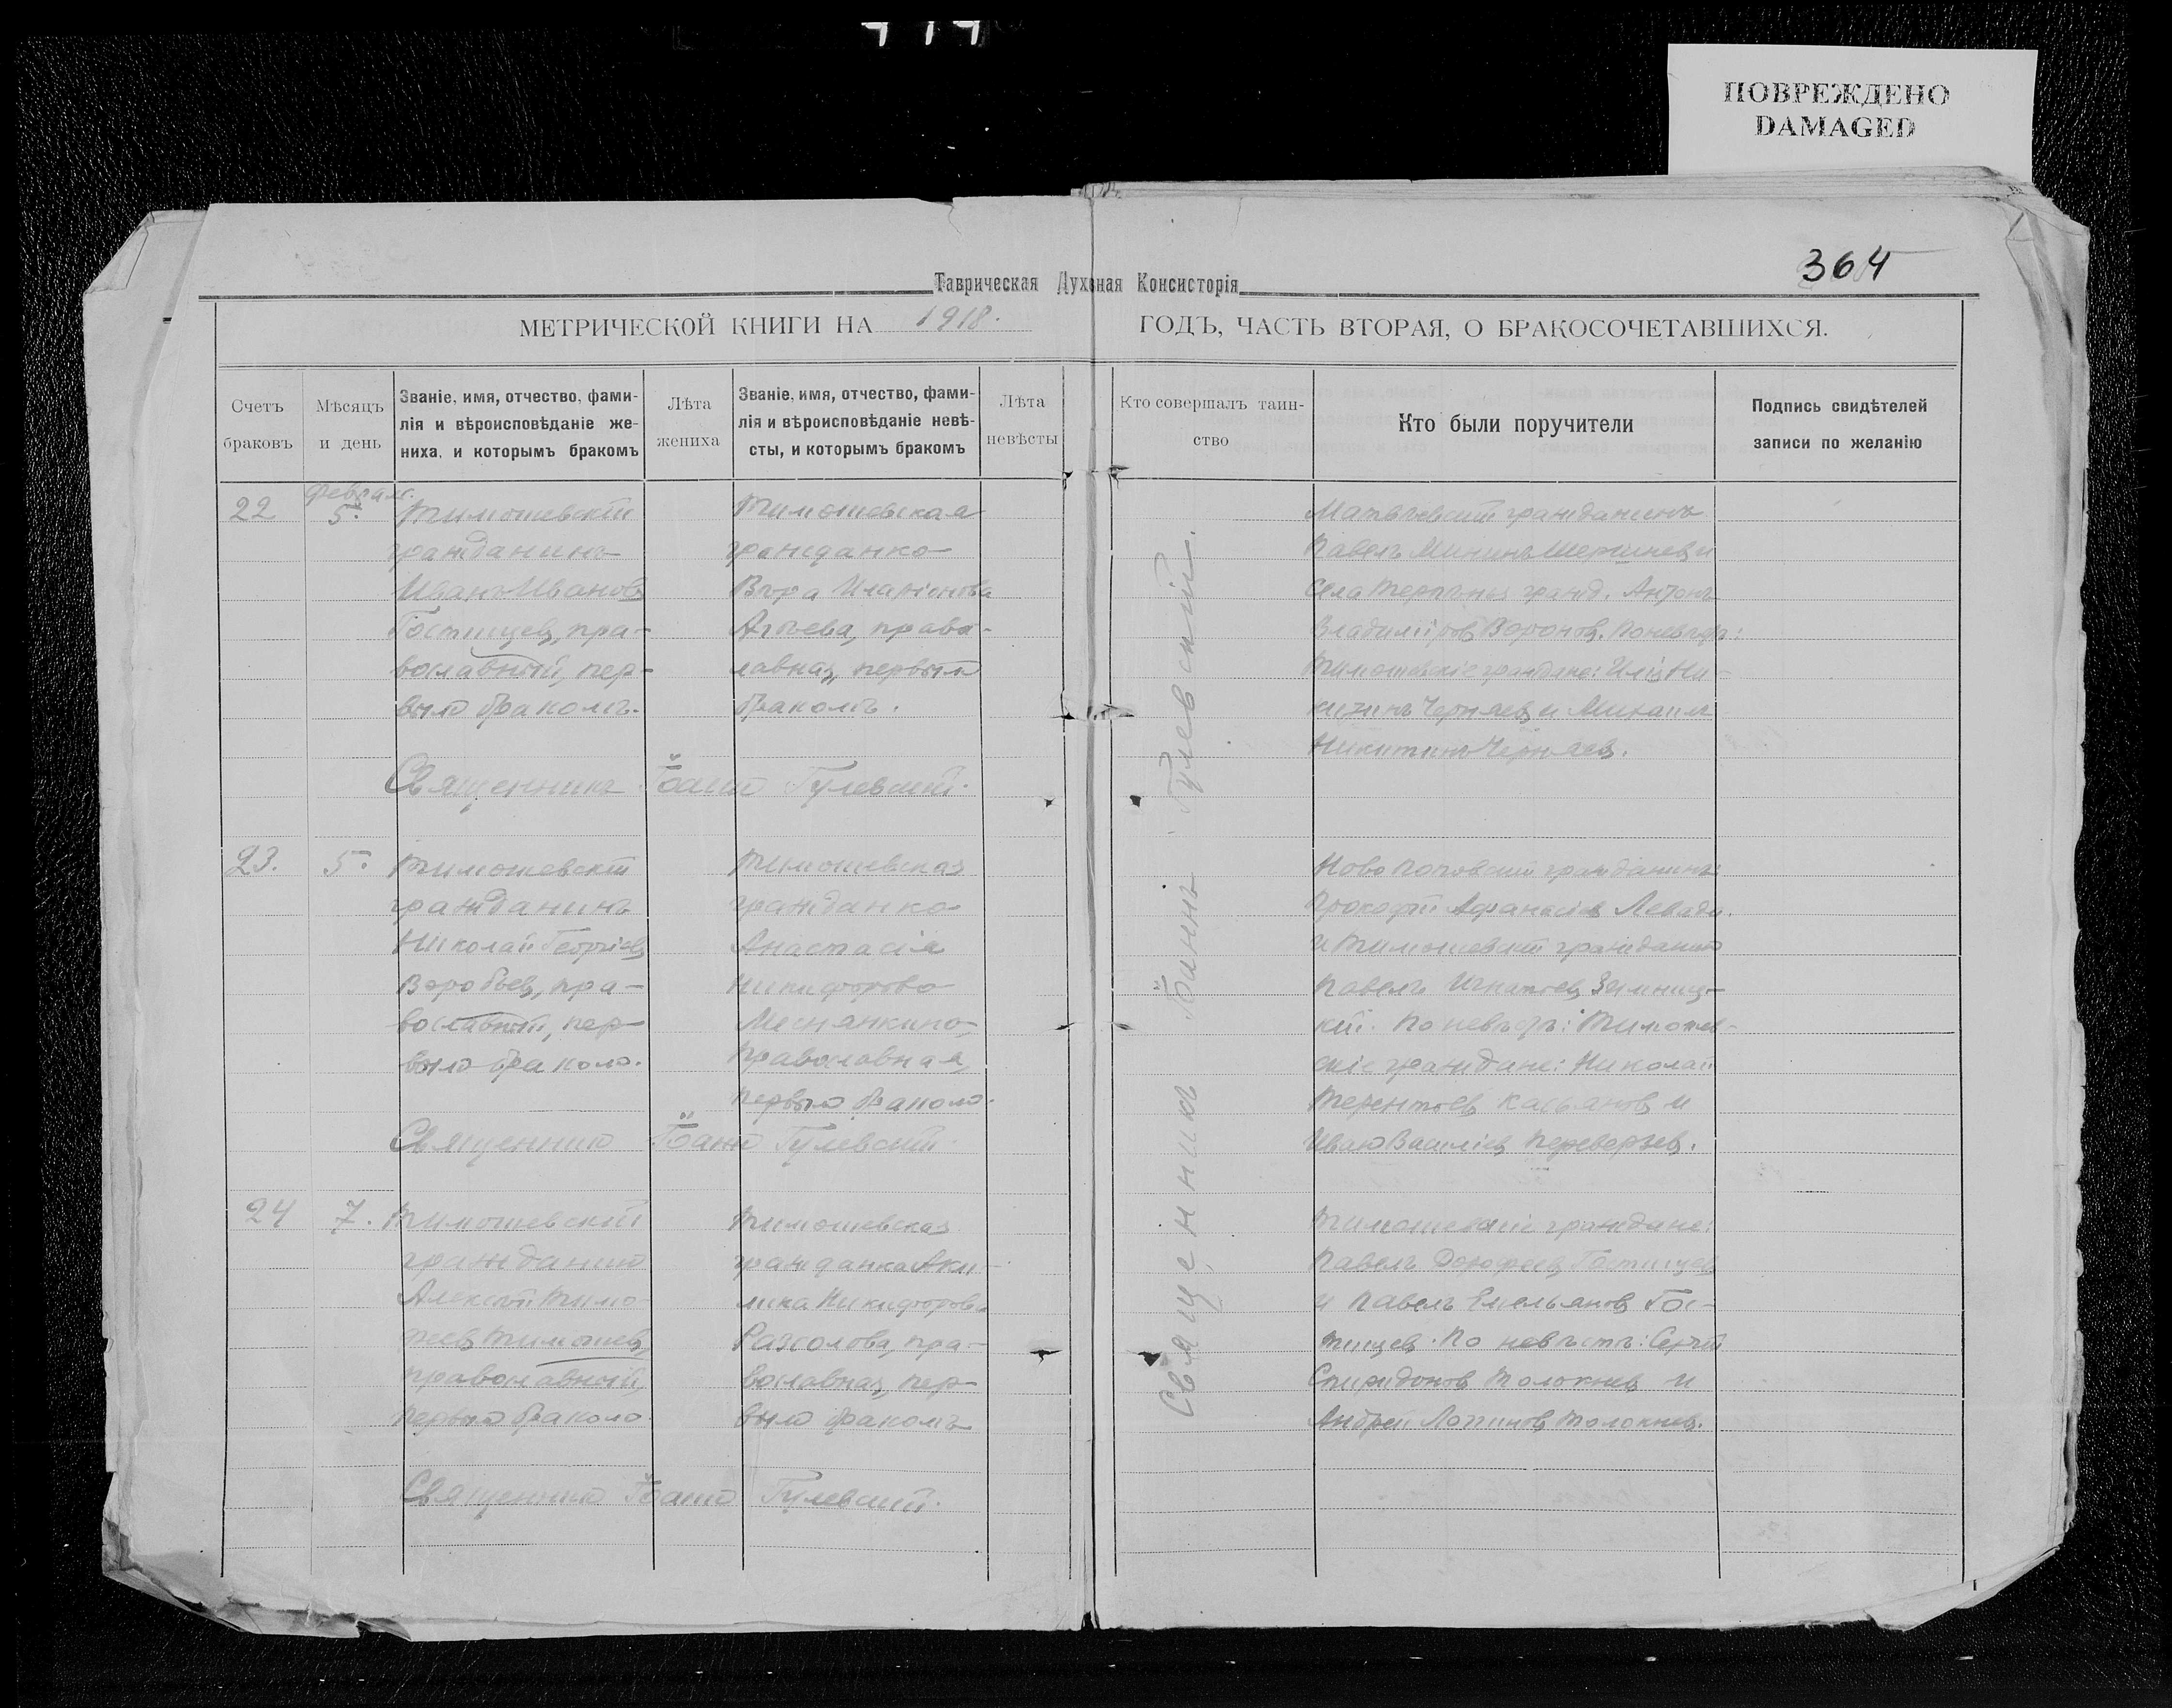 ПОВРЕЖДЕНО
DAMAGED
364
Таврическая Духовная Консисторія
МЕТРИЧЕСКОЙ КНИГИ НА 1918. ГОДЪ, ЧАСТЬ ВТОРАЯ, О БРАКОСОЧЕТАВШИХСЯ.
Счетъ браковъ
Мѣсяцъ и день
Званіе, имя, отчество, фами-
лія и вѣроисповѣданіе же-
ниха, и которымъ бракомъ
Лѣта жениха
Званіе, имя, отчество, фами-
лія и вѣроисповѣданіе невѣ-
сты, и которымъ бракомъ
Лѣта невѣсты
Кто совершалъ таин-
ство
Кто были поручители
Подпись свидѣтелей
записи по желанію
22
5.
Тимошевскій
гражданинъ
Иванъ Ивановъ
Гостищевъ, пра-
вославный, пер-
вымъ бракомъ.
Тимошевская
гражданка
Вѣра Иларіонова
Агѣева, право-
лавная, первымъ
бракомъ.
гражданинъ
Павелъ Мининъ
гражд. Антонъ
Владиміровъ Вороновъ.
Тимошевскіе граждане: Илія Ни-
китинъ Черняевъ и Михаилъ
Никитинъ Черняевъ.
Священникъ Іоаннъ Гулевскій.
23.
5.
Тимошевскій
гражданинъ
Николай Георгіевъ
Воробьевъ, пра-
вославный, пер-
вымъ бракомъ.
Тимошевская
гражданка
Анастасія
Никифорова
Православная,
первымъ бракомъ.
гражданинъ:
Прокофій Афанасіевъ
и Тимошевскій гражданинъ
Павелъ Игнатьевъ Зимниц-
кій. По невѣстѣ: Тимошев-
скіе граждане: Николай
Терентьевъ Касьяновъ и
Иванъ Василіевъ Переверзевъ.
Священникъ Іоаннъ Гулевскій.
24
7.
Тимошевскій
гражданинъ
Алексѣй Тимо-
феевъ Тимошевъ,
православный,
первымъ бракомъ
Тимошевская
гражданка Аки-
лина Никифорова
пра-
вославная, пер-
вымъ бракомъ
Тимошевскіе граждане:
Павелъ Гостищевъ
и Павелъ Емельяновъ Гос-
тищевъ. По невѣстѣ: Сергій
Спиридоновъ Толокневъ и
Андрей Толокневъ.
Священникъ Іоаннъ Гулевскій.
Священникъ Іоаннъ Гулевскій.